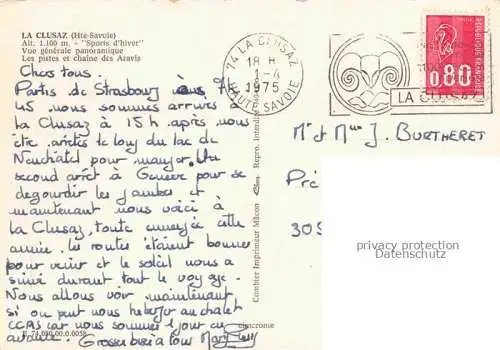 LA CLUSAZ (Hte-Savoie)
Alt. 1.100 m. - "Sports d'hiver"
Vue générale panoramique
Les pistes et chaîne des Aravis
Chers tous.
Partis de Strasbourg à 7h
45 nous sommes arrivés à
la Clusaz à 15h après nous
être arrêtés le long du lac de
Neuchâtel pour manger. Un
second arrêt à Genève pour se
dégourdir les jambes et
maintenant nous voici à
la Clusaz, toute enneigée cette
année. Les routes étaient bonnes
pour venir et le soleil nous a
suivi durant tout le voyage.
Nous allons voir maintenant
si on peut nous héberger au chalet
CCAS car nous sommes 1 jour en
avance. Grosses bises à tous
E 74.080.00.0.0058
Combier Imprimeur Mâcon
Repro. Interdite
74 LA CLUSAZ
18 H
1-4
1975
HAUTE SAVOIE
LA CLUSAZ
0,80
REPUBLIQUE FRANÇAISE
Mr et Mme J. BURTHERET
Pré
305
privacy protection
Datenschutz